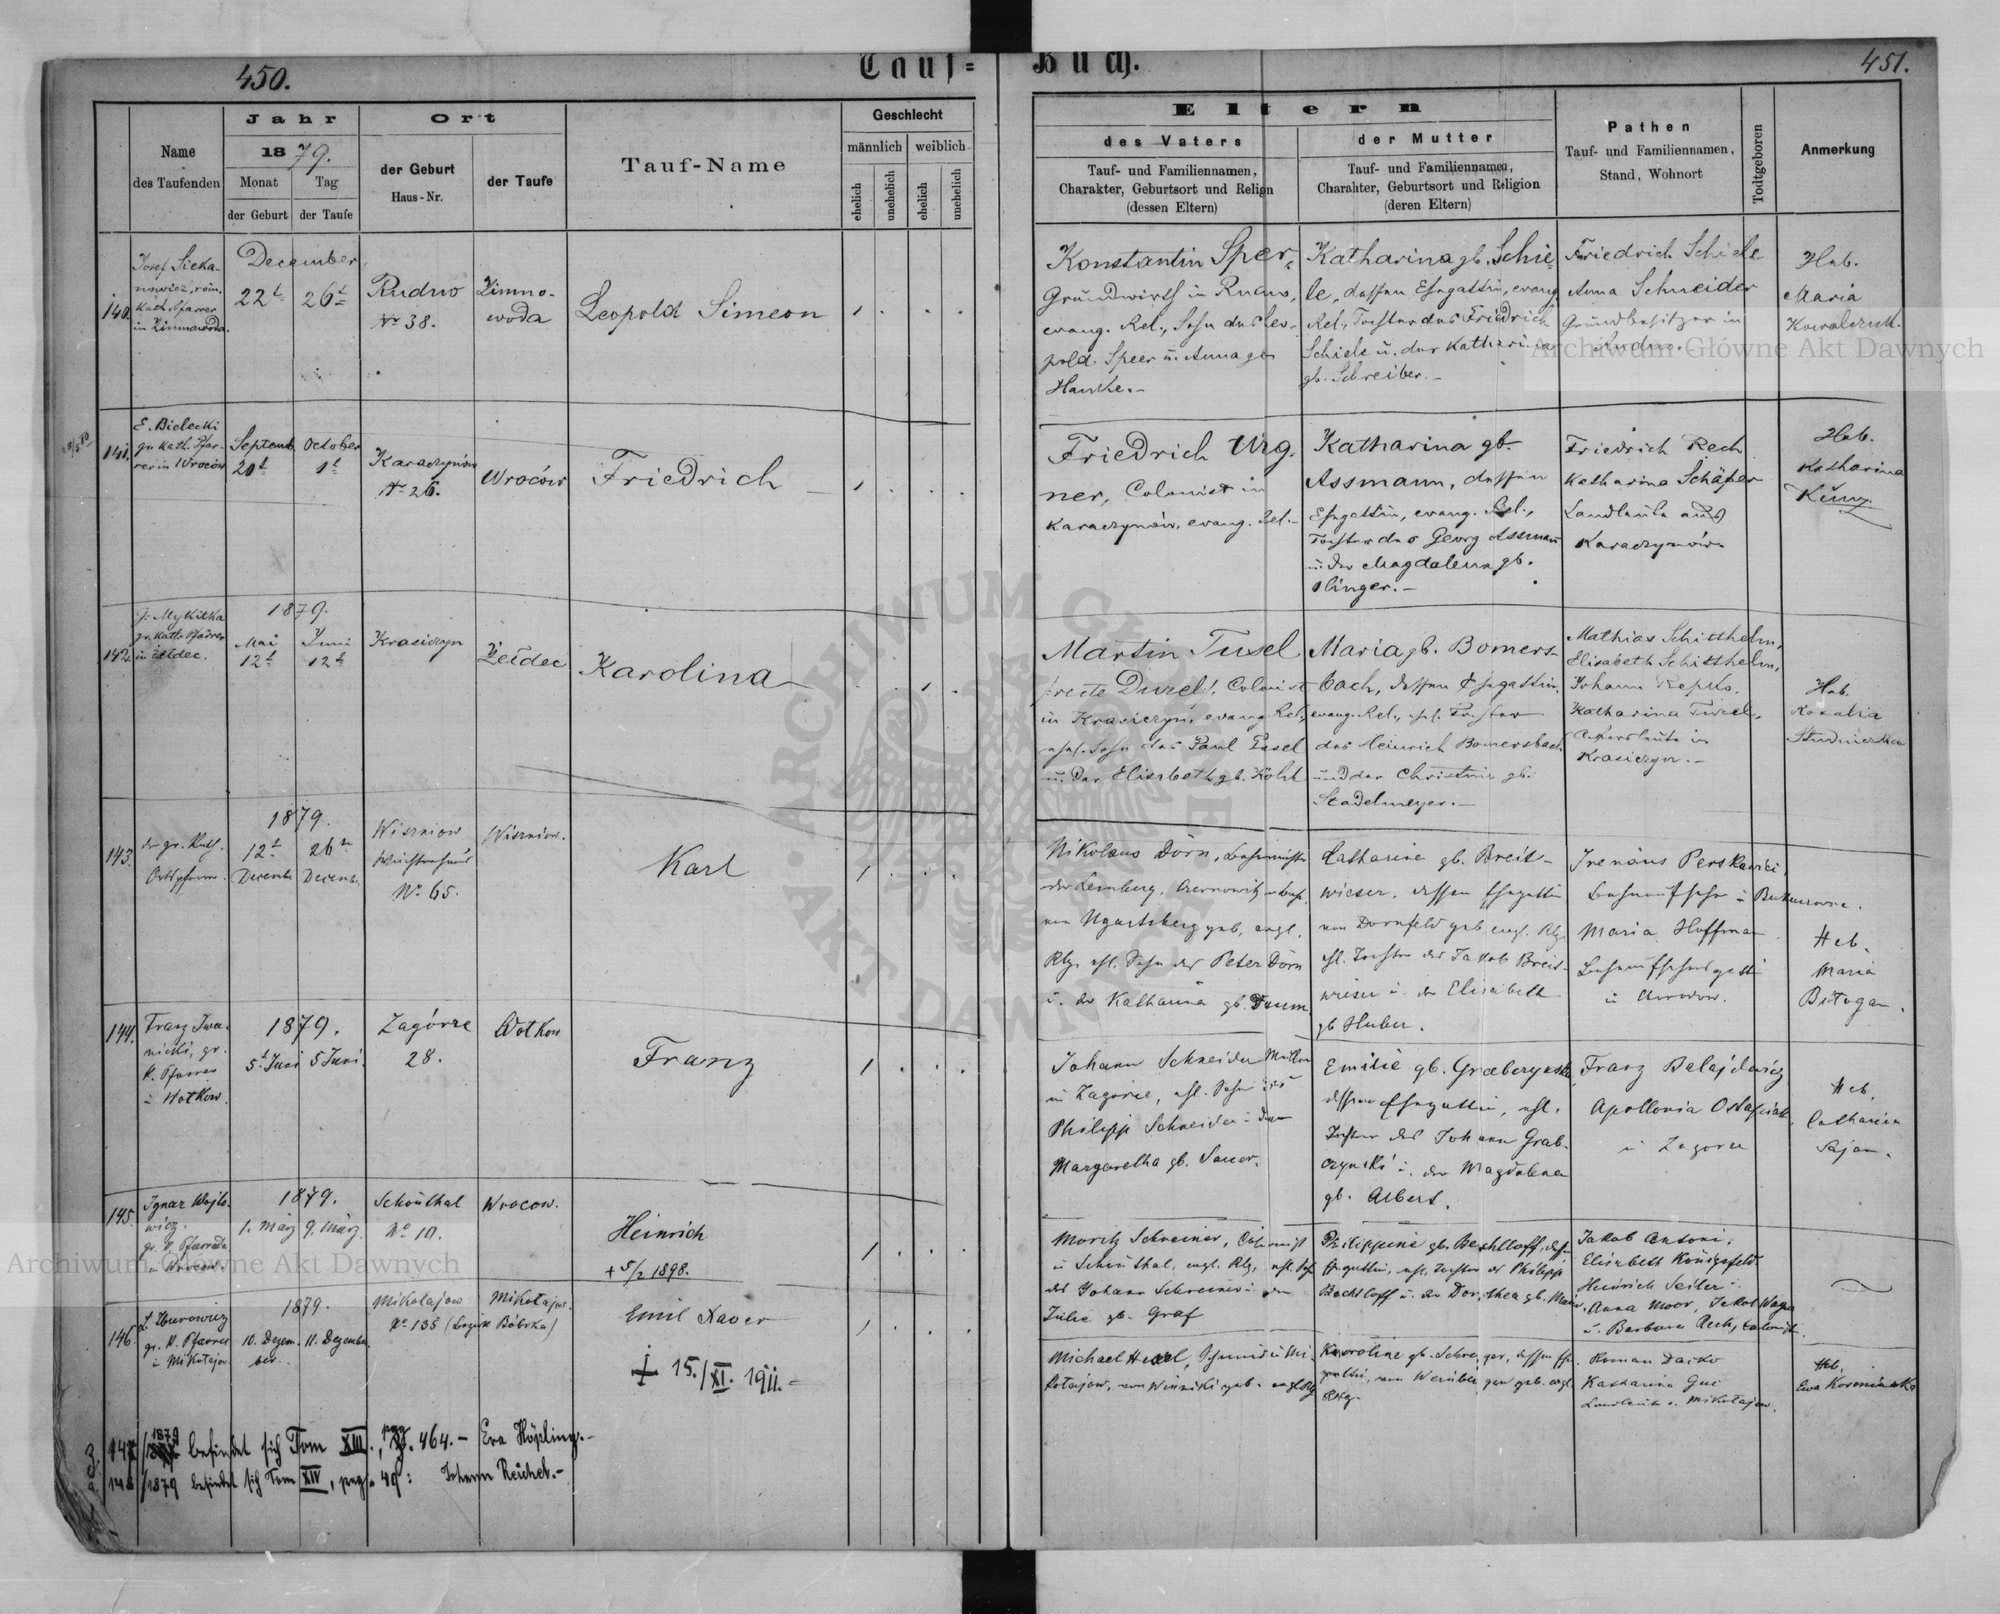 450.
Tauf=
Name
des Taufenden
Jahr
1879.
Monat
Tag
der Geburt
der Taufe
Ort
der Geburt
Haus-Nr.
der Taufe
Tauf-Name
Geschlecht
männlich
weiblich
ehelich
unehelich
ehelich
unehelich
140.
Josef Sieka-
nowicz, röm.
Kath. Pfarrer
in Zimnawoda.
December
22t
26t
Rudno
Nr 38.
Zimno-
woda
Leopold Simeon
141.
E. Bielecki
gr. kath. Pfar-
rer in Wroców
Septemb.
20t
October
1t
Karaczynów
Nr 26.
Wroców
Friedrich
142.
J. Mykitka
gr. kath. Pfarrer
in Żełdec.
1879.
Mai
12t
Juni
12t
Krasiczyn
Żełdec
Karolina
143.
der gr. Kath.
Ortspfarrer.
1879.
12t
Decemb.
26te
Decemb.
Wiszniow
Wächterhaus
No 65.
Wiszniow.
Karl
144.
Franz Iwa-
nicki, gr.
K. Pfarrer
in Hotkow.
1879.
5t Juni
5 Juni.
Zagórze
28.
Wotkow
Franz
145.
Ignaz Wojto-
wicz.
gr. K. Pfarrer
in Wrocow.
1879.
1. März
9. März.
Schönthal
No 10.
Wrocow.
Heinrich
+ 5/2 1898.
146.
L. Hurowicz
gr. K. Pfarrer
in Mikołajow
1879.
10. Dezem-
ber.
11. Dezember
Mikołajow
No 135 (Bezirk Bóbrka)
Mikołajow.
Emil Xaver
+ 15./XI. 1911.-
147/1879 befindet sich Tom XIII., pag. 464.- Eva Höpling.-
148/1879 befindet sich Tom XIV, pag. 49: Johann Reichel.-
Buch.
451.
Eltern
des Vaters
Tauf- und Familiennamen,
Charakter, Geburtsort und Religion
(dessen Eltern)
der Mutter
Tauf- und Familiennamen,
Charakter, Geburtsort und Religion
(deren Eltern)
Pathen
Tauf- und Familiennamen,
Stand, Wohnort
Todtgeboren
Anmerkung
Konstantin Sper,
Grundwirth in Rudno,
evang. Rel., Sohn des Leo-
pold Speer u. Anna geb
Hanke.-
Katharina gb. Schie-
le, dessen Ehegattin, evang.
Rel., Tochter des Friedrich
Schiele u. der Katharina
gb. Schreiber.-
Friedrich Schiele
Anna Schneider
Grundbesitzer in
Rudno.
Heb.
Maria
Kowalczuk.
Friedrich Urg-
ner, Colonist in
Karaczynów, evang. Rel.-
Katharina gb.
Assmann, dessen
Ehegattin, evang. Rel.,
Tochter des Georg Assmann
u. der Magdalena gb.
Olinger.-
Friedrich Rech
Katharina Schäfer
Landleute aus
Karaczynów.
Heb.
Katharina
Küny.
Martin Tusel
/recte Duzel/, Colonist
in Krasiczyn, evang. Rel.,
ehel. Sohn des Paul Tusel
u. der Elisabeth gb. Köhl
Maria gb. Bomers-
bach, dessen Ehegattin,
evang. Rel., ehel. Tochter
des Heinrich Bomersbach
und der Christine gb.
Stadelmeyer.-
Mathias Schitthelm,
Elisabeth Schitthelm,
Johann Repsto,
Katharina Tusel,
Ackersleute in
Krasiczyn.-
Heb.
Rosalia
Nikolaus Dörn, Bahnwächter
der Lemberg. Czernowitz
von Ugartsberg geb, evgl.
Rlg. ehl. Sohn des Peter Dörn
u. der Katharina gb. Daum.
Catharina gb. Breit-
wieser, dessen Ehegattin
von Dornfeld geb, evgl. Rlg.
ehl. Tochter des Jakob Breit-
wieser u. der Elisabeth
gb Huber.
Irenäus
Bahnaufseher in
Maria Hoffman
Heb.
Maria
Johann Schneider Müller
in Zagórze, ehl. Sohn des
Philipp Schneider u. der
Margaretha gb. Sauer.
Emilie gb.
dessen Ehegattin, ehl.
Tochter des Johann Grab-
czynski u. der Magdalena
gb. Albert.
Franz
Apollonia
in Zagorze
Heb.
Catharina
Sajan.
Moritz Schreiner, Colonist
in Schönthal, evgl. Rlg, ehl. Sohn
des Johann Schreiner u. der
Julie gb. Graf
Philippine gb. Bechtloff, dessen
Ehegattin, ehl. Tochter des Philipp
Bechtloff u. der Dorothea gb.
Jakob Antoni,
Elisabeth Königsfeld
Heinrich Seiler
Anna Moor, Jakob Wagner
u. Barbara Rech, Colonist.
Michael Hexel, Schmied in Mi-
kołajow, von Winniki geb. evgl. Rlg
Karoline gb.
Roman
Katharina
Landleute in Mikołajow.
Heb.
Ewa
Archiwum Główne Akt Dawnych
Archiwum Główne Akt Dawnych
ARCHIWUM GŁÓWNE AKT DAWNYCH